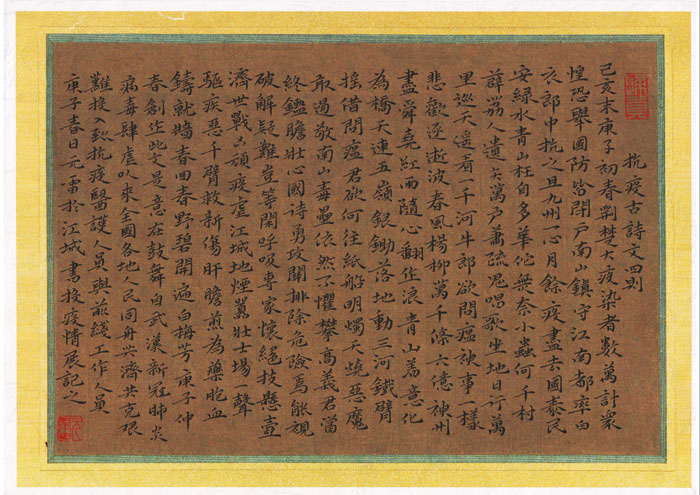 抗疫古詩文四則
己亥末庚子初春荊楚大疫染者數萬計眾
惶恐舉國防皆閉戶南山鎮守江南都率白
衣郎中抗之且九州一心月餘疫盡去國泰民
安綠水青山枉自多華佗無奈小蟲何千村
薜荔人遺矢萬戶蕭疏鬼唱歌坐地日行萬
里巡天遥看一千河牛郎欲問瘟神事一樣
悲歡逐逝波春風楊柳萬千條六億神州
盡舜堯紅雨隨心翻作浪青山着意化
為橋天連五嶺銀鋤落地動三河鐵臂
摇借問瘟君欲何往紙船明燭天燒惡魔
取過敬南山毒壘依然不懼攀高義君當
終鑑膽壯心國詩勇攻關排除危險焉能視
破解疑難豈等閑呼吸專家懷絕技懸壺
濟世戰頑疫虐江城地煙翼壯士場一聲
驅疾惡千臂救新傷肝膽煎為藥胞血
鑄就牆春回春野碧開遍白梅芳庚子仲
春創作此文是意在鼓舞自武漢新冠肺炎
病毒肆虐以來全國各地人民同舟共濟共克艰
難投入到抗疫醫護人員與前綫工作人員
庚子春日元雷於江城書投疫情展記之